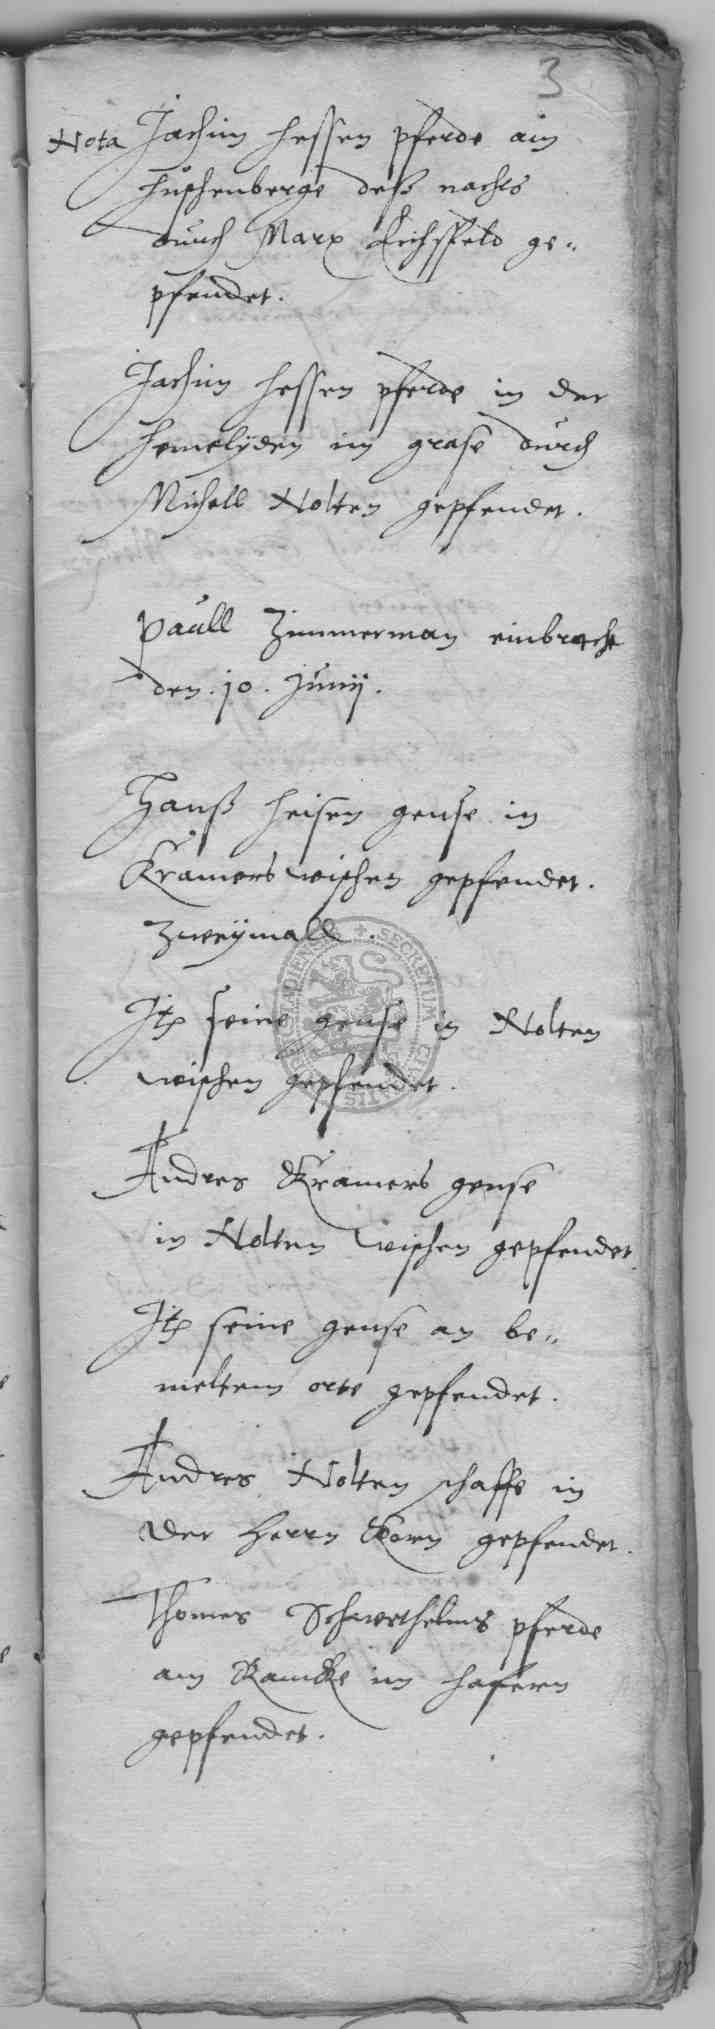 3
Nota Jachim Hessen pferde am
Huschenberge deß nachts
durch Marx Eichsfeld ge„
pfendet.
Jachim Hessen pferde in der
im grase durch
Michell Nolten gepfendet.
Paull Zimmerman einbracht
den . 10 . Junij .
Hanß Heisen gense in
Kramers wischen gepfendet.
Zweymall .
Itp seine gense in Nolten
wischen gepfendet .
Andres Kramers gense
in Nolten wischen gepfendet
Itp seine gense an be„
meltem orte gepfendet .
Andres Nolten schaffe in
der Herrn Korn gepfendet .
Thomes Schwethelms pferde
am Ramcke im hafern
gepfendet .
SECRETUM